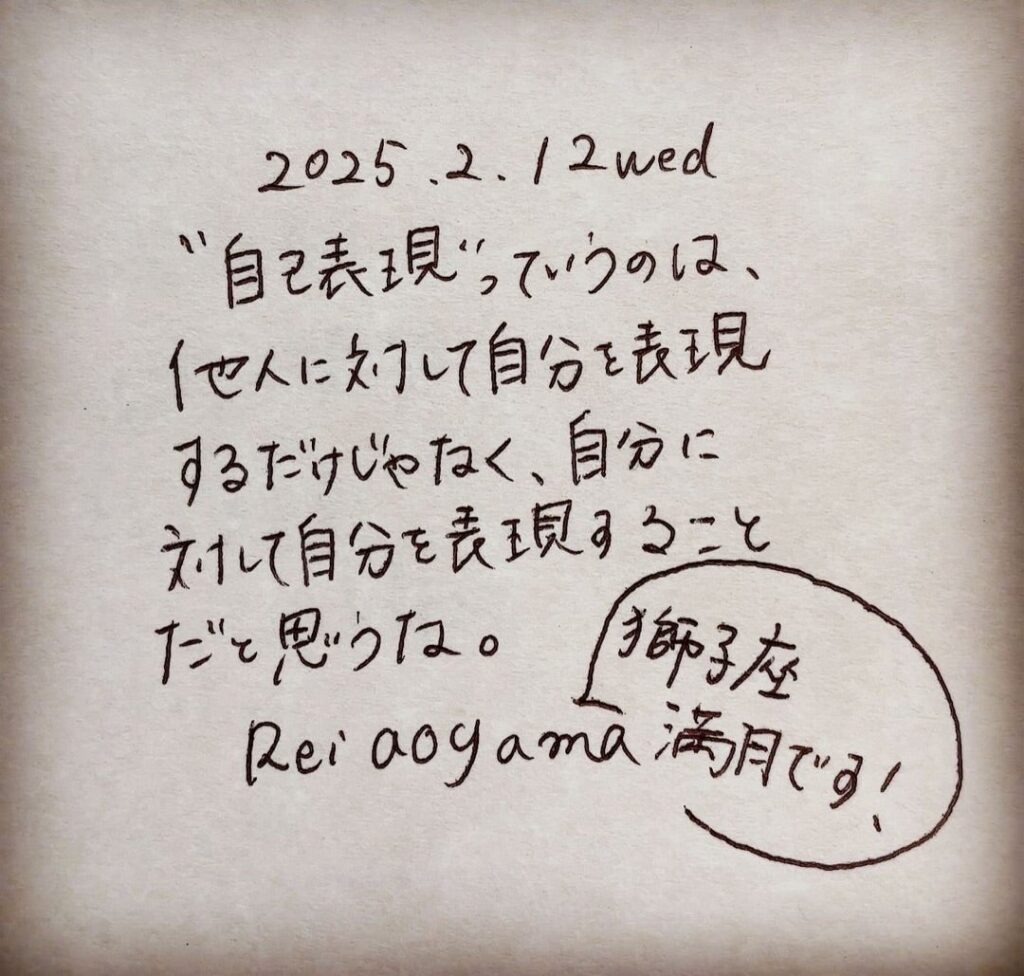 2025.2.12wed
"自己表現"っていうのは、
他人に対して自分を表現
するだけじゃなく、自分に
対して自分を表現すること
だと思うな。
Rei aoyama
獅子座
満月です!